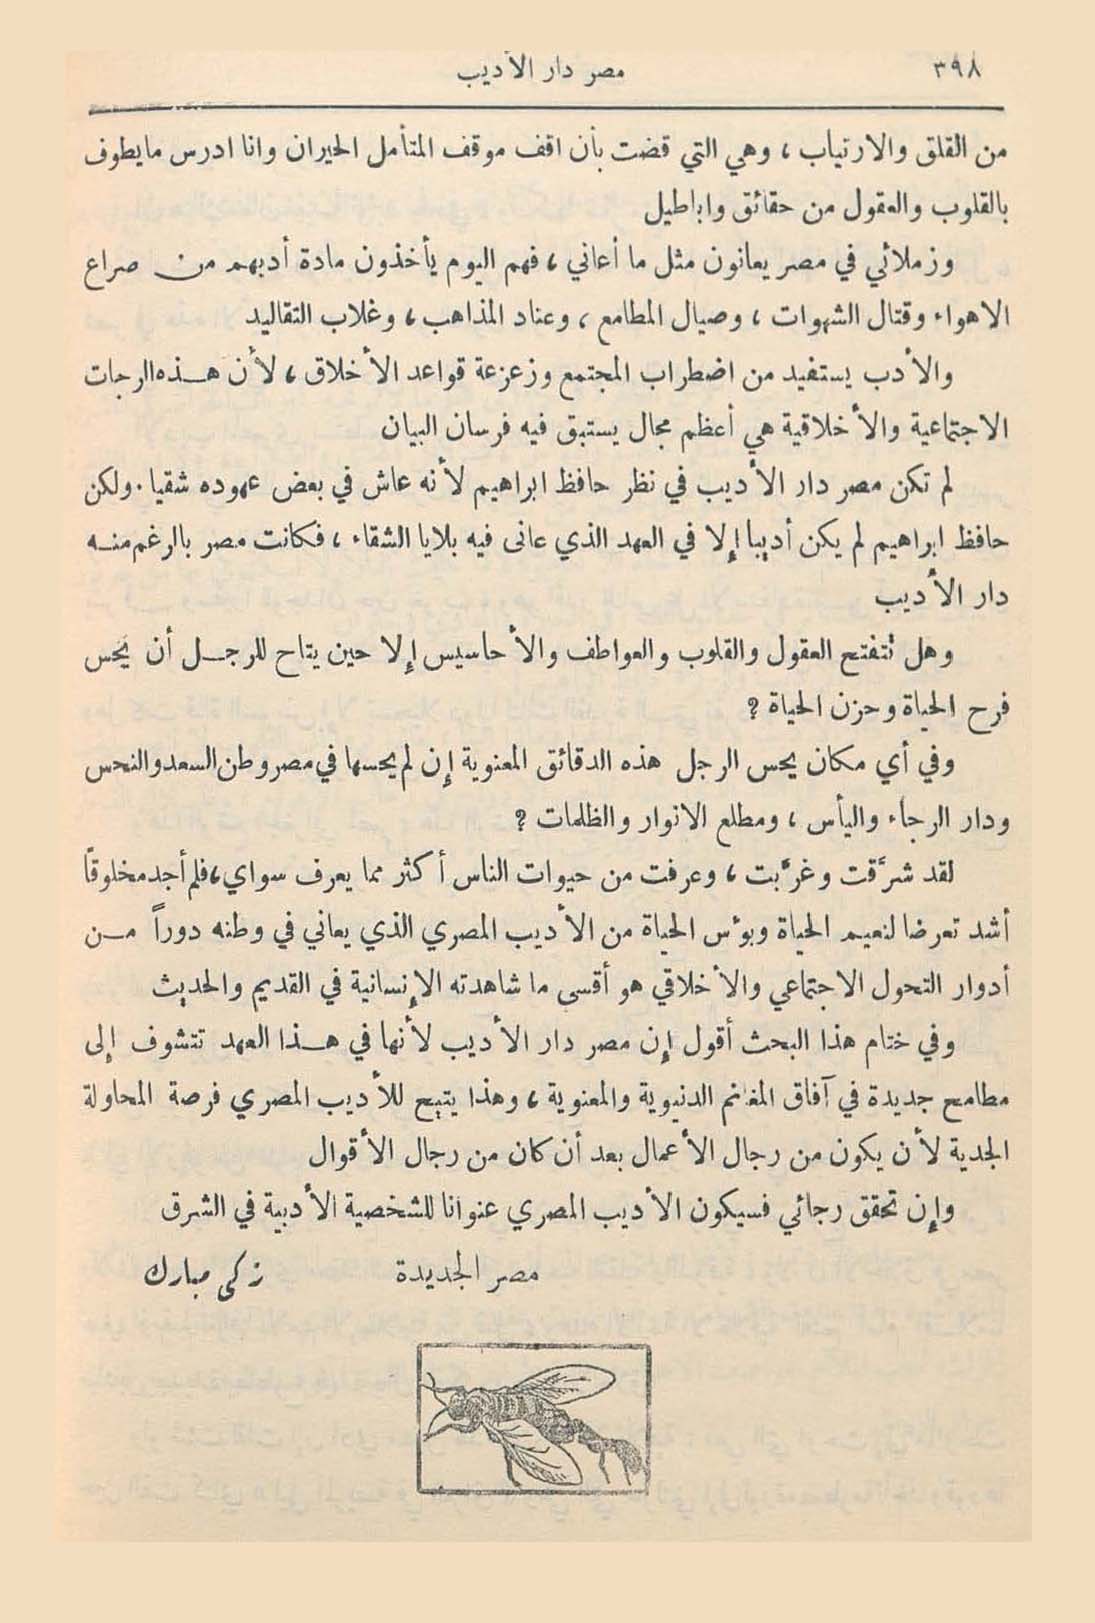 ٣٩٨
مصر دار الأديب
من القلق والارتياب ، وهي التي قضت بأن اقف موقف المتأمل الحيران وانا ادرس مايطوف
بالقلوب والعقول من حقائق واباطيل
وزملائي في مصر يعانون مثل ما أعاني ، فهم اليوم يأخذون مادة أدبهم من صراع
الاهواء وقتال الشهوات ، وصيال المطامع ، وعناد المذاهب ، وغلاب التقاليد
والأدب يستفيد من اضطراب المجتمع وزعزعة قواعد الأخلاق ، لأن هــذه الرجات
الاجتماعية والأخلاقية هي أعظم مجال يستبق فيه فرسان البيان
لم تكن مصر دار الأديب في نظر حافظ ابراهيم لأنه عاش في بعض عهوده شقيا . ولكن
حافظ ابراهيم لم يكن أديبا إلا في العهد الذي عانى فيه بلايا الشقاء ، فكانت مصر بالرغم منــه
دار الأديب
وهل تتفتح العقول والقلوب والعواطف والأحاسيس إلا حين يتاح للرجــل أن يحس
فرح الحياة وحزن الحياة ؟
وفي أي مكان يحس الرجل هذه الدقائق المعنوية إن لم يحسها في مصر وطن السعد والنحس
ودار الرجاء واليأس ، ومطلع الانوار والظلمات ؟
لقد شرَّقت وغرَّبت ، وعرفت من حيوات الناس أكثر مما يعرف سواي ، فلم أجد مخلوقاً
أشد تعرضا لنعيم الحياة وبؤس الحياة من الأديب المصري الذي يعاني في وطنه دوراً مــن
أدوار التحول الاجتماعي والأخلاقي هو أقسى ما شاهدته الإنسانية في القديم والحديث
وفي ختام هذا البحث أقول إن مصر دار الأديب لأنها في هــذا العهد تتشوف إلى
مطامع جديدة في آفاق المغانم الدنيوية والمعنوية ، وهذا يتيح للأديب المصري فرصة المحاولة
الجدية لأن يكون من رجال الأعمال بعد أن كان من رجال الأقوال
وإن تحقق رجائي فسيكون الأديب المصري عنوانا للشخصية الأدبية في الشرق
مصر الجديدة زكى مبارك